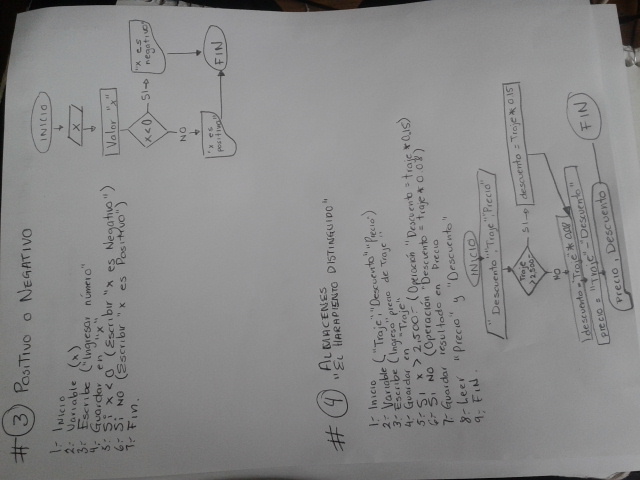 #3 POSITIVO O NEGATIVO
1- INICIO
2- Variable (x)
3- Escribe ("Ingresar número"
4- Guardar en "x"
5- Si x < 0 (Escribir "x es Negativo")
6- Si NO (Escribir "x es Positivo")
7- Fin.
INICIO
X
Valor "x"
x<0
SI→
"x es
negativo"
NO
"x es
positivo"
FIN
#4 ALMACENES
"EL HARAPIENTO DISTINGUIDO"
1- Inicio
2- Variable ("Traje","Descuento","Precio")
3- Escribe (Ingresa precio de Traje"
4- Guardar en "Traje"
5- Si x > 2,500.- (Operación "Descuento = traje * 0.15)
6- Si NO (Operación "Descuento = traje * 0.08)
7- Guardar resultado en Precio
8- Leer "Precio" y "Descuento"
9- FIN.
INICIO
"Descuento","Traje","Precio"
Traje
>2,500.-
SI→
descuento = Traje * 0.15
NO
descuento = Traje * 0.08
precio = "Traje - Descuento"
Precio, Descuento
FIN